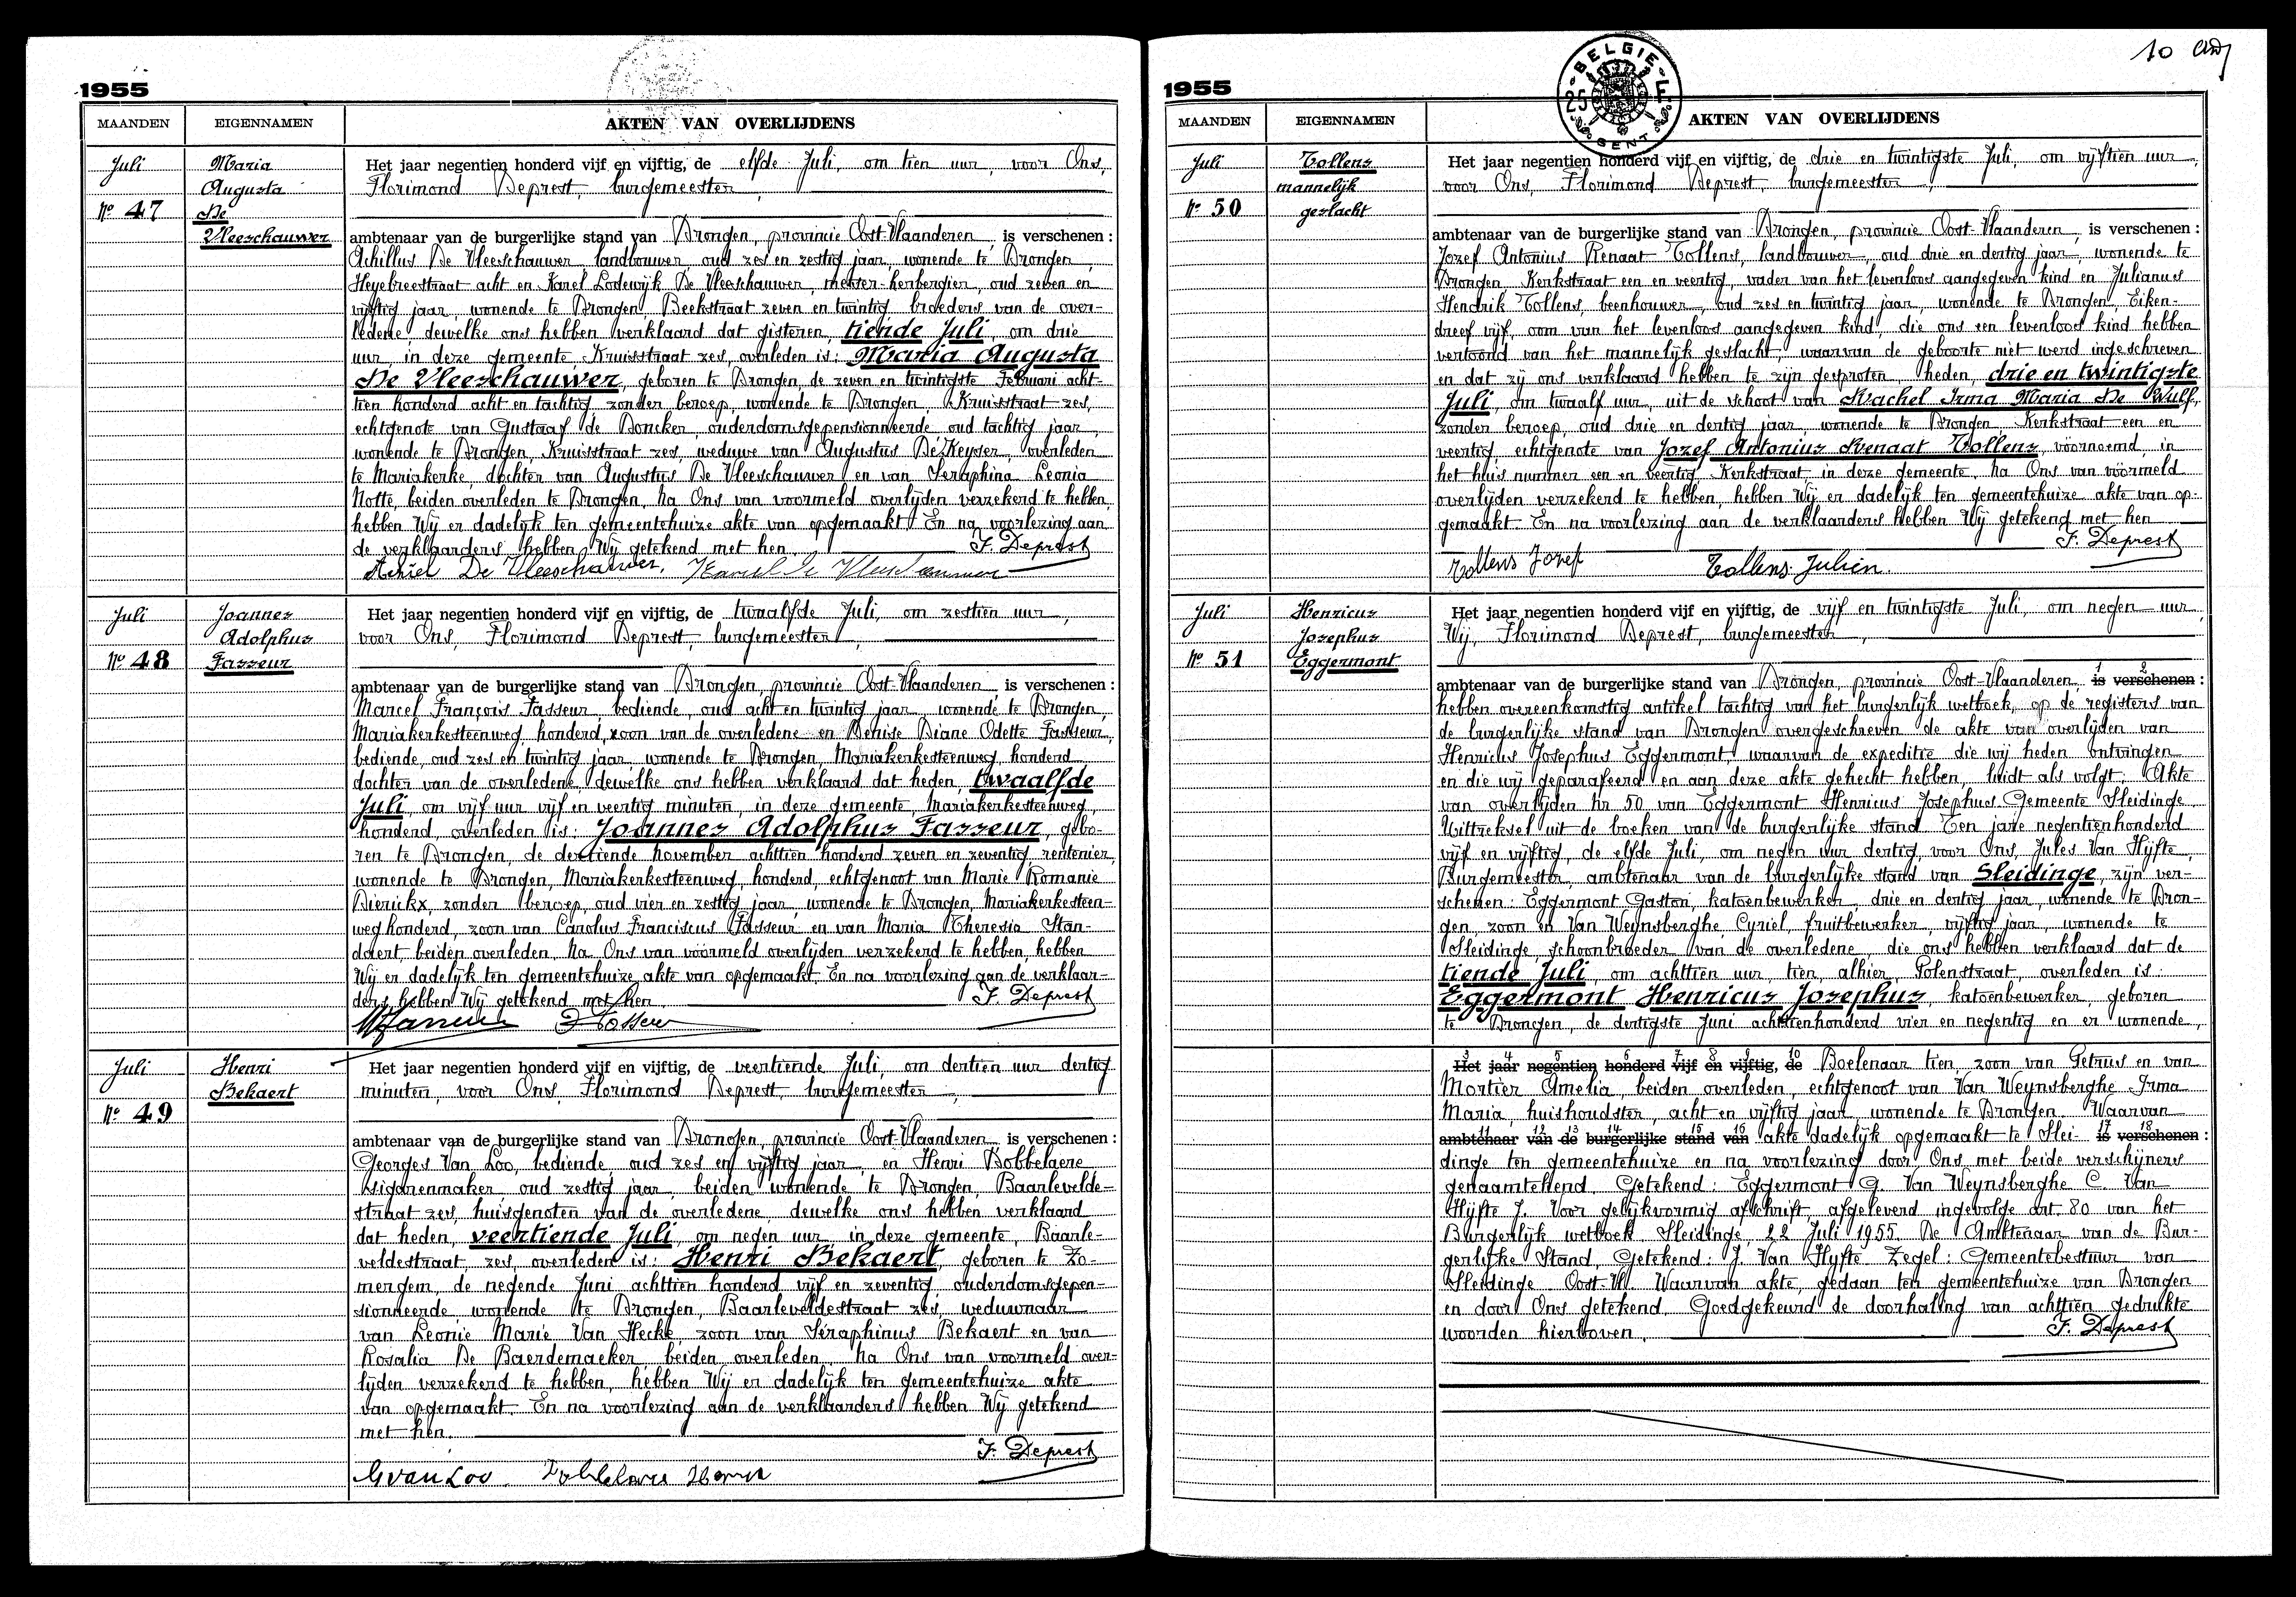 1955
MAANDEN EIGENNAMEN AKTEN VAN OVERLIJDENS
Juli
Nº 47
Maria
Augusta
De
Vleeschauwer
Het jaar negentien honderd vijf en vijftig, de elfde Juli, om tien uur, voor Ons,
Florimond Deprest, burgemeester,
ambtenaar van de burgerlijke stand van Drongen, provincie Oost-Vlaanderen, is verschenen :
Achillus De Vleeschauwer landbouwer oud zes en zestig jaar, wonende te Drongen,
Heyebreestraat acht en Karel Lodewijk De Vleeschauwer, metser-herbergier, oud zeven en
vijftig jaar, wonende te Drongen, Beekstraat zeven en twintig, broeders van de over-
ledene, dewelke ons hebben verklaard dat gisteren, tiende Juli, om drie
uur, in deze gemeente Kruisstraat zes, overleden is: Maria Augusta
De Vleeschauwer, geboren te Drongen, de zeven en twintigste Februari acht-
tien honderd acht en tachtig, zonder beroep, wonende te Drongen, Kruisstraat zes,
echtgenote van Gustaaf de Doncker, ouderdomsgepensionneerde, oud tachtig jaar,
wonende te Drongen, Kruisstraat zes, weduwe van Augustus De Keyser, overleden
te Mariakerke, dochter van Augustus De Vleeschauwer en van Seraphina Leonia
Notte, beiden overleden te Drongen. Na Ons van voormeld overlijden verzekerd te hebben,
hebben Wij er dadelijk ten gemeentehuize akte van opgemaakt. En na voorlezing aan
de verklaarders hebben Wij getekend met hen. F. Deprest
Achiel De Vleeschauwer, Karel De Vleeschauwer
Juli
Nº 48
Joannes
Adolphus
Fasseur
Het jaar negentien honderd vijf en vijftig, de twaalfde Juli, om zestien uur,
voor Ons, Florimond Deprest, burgemeester,
ambtenaar van de burgerlijke stand van Drongen, provincie Oost-Vlaanderen, is verschenen :
Marcel François Fasseur, bediende, oud acht en twintig jaar, wonende te Drongen,
Mariakerkesteenweg, honderd, zoon van de overledene en Denise Diane Odette Fasseur,
bediende, oud zes en twintig jaar, wonende te Drongen, Mariakerkesteenweg, honderd,
dochter van de overledene, dewelke ons hebben verklaard dat heden, twaalfde
Juli, om vijf uur vijf en veertig minuten, in deze gemeente, Mariakerkesteenweg,
honderd, overleden is: Joannes Adolphus Fasseur, gebo-
ren te Drongen, de dertiende November achttien honderd zeven en zeventig, rentenier,
wonende te Drongen, Mariakerkesteenweg, honderd, echtgenoot van Marie Romanie
Dierickx, zonder beroep, oud vier en zestig jaar, wonende te Drongen, Mariakerkesteen-
weg honderd, zoon van Carolus Franciscus Fasseur en van Maria Theresia Stan-
daert, beiden overleden. Na Ons van voormeld overlijden verzekerd te hebben, hebben
Wij er dadelijk ten gemeentehuize akte van opgemaakt. En na voorlezing aan de verklaar-
ders hebben Wij getekend met hen. F. Deprest
Juli
Nº 49
Henri
Bekaert
Het jaar negentien honderd vijf en vijftig, de veertiende Juli, om dertien uur dertig
minuten, voor Ons, Florimond Deprest, burgemeester,
ambtenaar van de burgerlijke stand van Drongen, provincie Oost-Vlaanderen, is verschenen :
Georges Van Loo, bediende, oud zes en vijftig jaar, en Henri Bobbelaere
sigarenmaker, oud zestig jaar, beiden wonende te Drongen, Baarlevelde-
straat zes, huisgenoten van de overledene dewelke ons hebben verklaard
dat heden, veertiende Juli, om negen uur, in deze gemeente, Baarle-
veldestraat, zes, overleden is: Henri Bekaert, geboren te Zo-
mergem, de negende Juni achttien honderd vijf en zeventig, ouderdomsgepen-
sionneerde, wonende te Drongen, Baarleveldestraat zes, weduwnaar
van Leonie Marie Van Hecke, zoon van Séraphinus Bekaert en van
Rosalia De Baerdemaeker, beiden overleden. Na Ons van voormeld over-
lijden verzekerd te hebben, hebben Wij er dadelijk ten gemeentehuize akte
van opgemaakt. En na voorlezing aan de verklaarders hebben Wij getekend
met hen.
F. Deprest
G van Loo. Bobbelaere Henri
10
1955
BELGIE
25 F
GENT
MAANDEN EIGENNAMEN AKTEN VAN OVERLIJDENS
Juli
Nº 50
Tollens
mannelijk
geslacht
Het jaar negentien honderd vijf en vijftig, de drie en twintigste Juli, om vijftien uur,
voor Ons, Florimond Deprest, burgemeester,
ambtenaar van de burgerlijke stand van Drongen, provincie Oost-Vlaanderen, is verschenen :
Jozef Antonius Renaat Tollens, landbouwer, oud drie en dertig jaar, wonende te
Drongen, Kerkstraat een en veertig, vader van het levenloos aangegeven kind en Julianus
Hendrik Tollens, beenhouwer, oud zes en twintig jaar, wonende te Drongen, Eiken-
dreef vijf, oom van het levenloos aangegeven kind, die ons een levenloos kind hebben
vertoond van het mannelijk geslacht, waarvan de geboorte niet werd ingeschreven
en dat zij ons verklaard hebben te zijn gesproten, heden, drie en twintigste
Juli, om twaalf uur, uit de schoot van Rachel Irma Maria De Wulf,
zonder beroep, oud drie en dertig jaar, wonende te Drongen, Kerkstraat een en
veertig, echtgenote van Jozef Antonius Renaat Tollens, voornoemd, in
het huis nummer een en veertig, Kerkstraat, in deze gemeente. Na Ons van voormeld
overlijden verzekerd te hebben, hebben Wij er dadelijk ten gemeentehuize akte van op-
gemaakt. En na voorlezing aan de verklaarders hebben Wij getekend met hen
F. Deprest
Tollens Jozef Tollens Julien
Juli
Nº 51
Henricus
Josephus
Eggermont
Het jaar negentien honderd vijf en vijftig, de vijf en twintigste Juli, om negen uur,
Wij, Florimond Deprest, burgemeester,
1 2
ambtenaar van de burgerlijke stand van Drongen, provincie Oost-Vlaanderen, is verschenen :
hebben overeenkomstig artikel tachtig van het burgerlijk wetboek, op de registers van
de burgerlijke stand van Drongen overgeschreven de akte van overlijden van
Henricus Josephus Eggermont, waarvan de expeditie die wij heden ontvingen
en die wij geparafeerd en aan deze akte gehecht hebben, luidt als volgt: Akte
van overlijden nr 50 van Eggermont Henricus Josephus Gemeente Sleidinge
Uittreksel uit de boeken van de burgerlijke stand. Ten jare negentienhonderd
vijf en vijftig, de elfde Juli, om negen uur dertig, voor Ons, Jules Van Hijfte,
Burgemeester, ambtenaar van de burgerlijke stand van Sleidinge, zijn ver-
schenen: Eggermont Gaston, katoenbewerker, drie en dertig jaar, wonende te Dron-
gen, zoon en Van Weynsberghe Cyriel, fruitbewerker, vijftig jaar, wonende te
Sleidinge, schoonbroeder van de overledene, die ons hebben verklaard dat de
tiende Juli om achttien uur tien, alhier, Polenstraat, overleden is:
Eggermont Henricus Josephus, katoenbewerker, geboren
te Drongen, de dertigste Juni achttienhonderd vier en negentig en er wonende,
3 4 5 6 7 8 9 10
Het jaar negentien honderd vijf en vijftig, de Boelenaar tien, zoon van Petrus en van
Mortier Amelia, beiden overleden, echtgenoot van Van Weynsberghe Irma
Maria, huishoudster, acht en vijftig jaar, wonende te Drongen. Waarvan
11 12 13 14 15 16 17 18
ambtenaar van de burgerlijke stand van akte dadelijk opgemaakt te Slei- is verschenen :
dinge ten gemeentehuize en na voorlezing door Ons met beide verschijners
genaamtekend. Getekend: Eggermont G. Van Weynsberghe C. Van
Hijfte J. Voor gelijkvormig afschrift, afgeleverd ingevolge art. 80 van het
Burgerlijk wetboek. Sleidinge, 22 Juli 1955. De Ambtenaar van de Bur-
gerlijke Stand, Getekend: J. Van Hijfte. Zegel: Gemeentebestuur van
Sleidinge Oost-Vl. Waarvan akte, gedaan ten gemeentehuize van Drongen
en door Ons getekend. Goedgekeurd de doorhaling van achttien gedrukte
woorden hierboven. F. Deprest